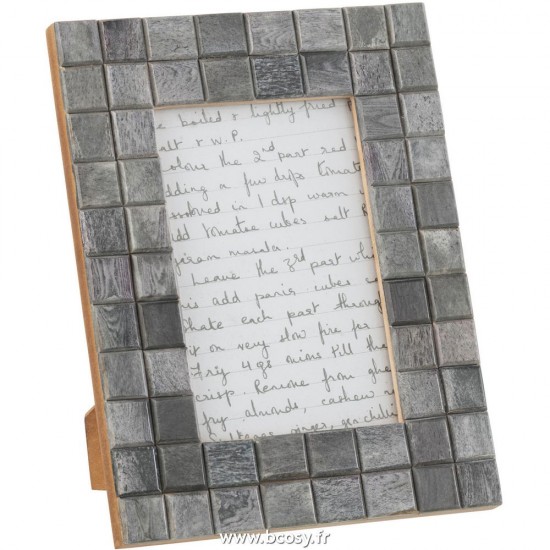 e boiled & lightly fried
alt & W.P.
olour the 2nd part red
dding a few drops tomato
ssolved in 1 dsp warm
dd tomatoe cubes salt &
garam masala.
Leave the 3rd part whi
is add panir cubes
Shake each part throug
it on very slow fire for
Fry 4 gs onions till the
crisp. Remove from ghe
fry almonds, cashew
ginger, gr. chili
www.bcosy.fr